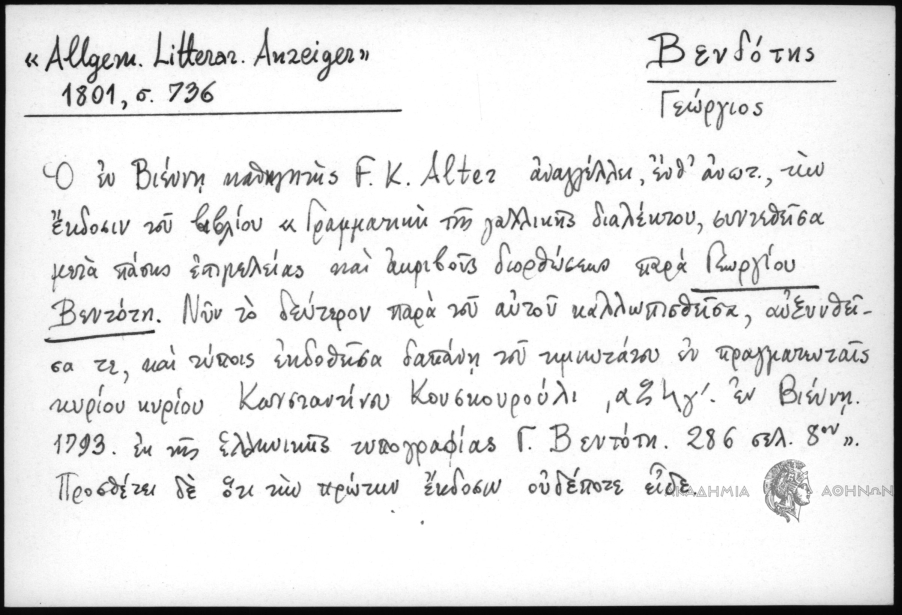 «Allgem. Litterar. Anzeiger»
1801, σ. 736
Βενδότης
Γεώργιος
Ὁ ἐν Βιέννῃ καθηγητὴς F. K. Alter ἀναγγέλλει, ἔνθ' ἀνωτ., τὴν
ἔκδοσιν τοῦ βιβλίου «Γραμματικὴ τῆς γαλλικῆς διαλέκτου, συντεθεῖσα
μετὰ πάσης ἐπιμελείας καὶ ἀκριβοῦς διορθώσεως παρὰ Γεωργίου
Βεντότη. Νῦν τὸ δεύτερον παρὰ τοῦ αὐτοῦ καλλωπισθεῖσα, αὐξυνθεῖ-
σα τε, καὶ τύποις ἐκδοθεῖσα δαπάνῃ τοῦ τιμιωτάτου ἐν πραγματευταῖς
κυρίου κυρίου Κωνσταντίνου Κουσκουρούλι ͵αϟψγ'. ἐν Βιέννῃ.
1793. ἐκ τῆς Ἑλληνικῆς τυπογραφίας Γ. Βεντότη. 286 σελ. 8ον».
Προσθέτει δὲ ὅτι τὴν πρώτην ἔκδοσιν οὐδέποτε εἶδε.
ΑΚΑΔΗΜΙΑ ΑΘΗΝΩΝ